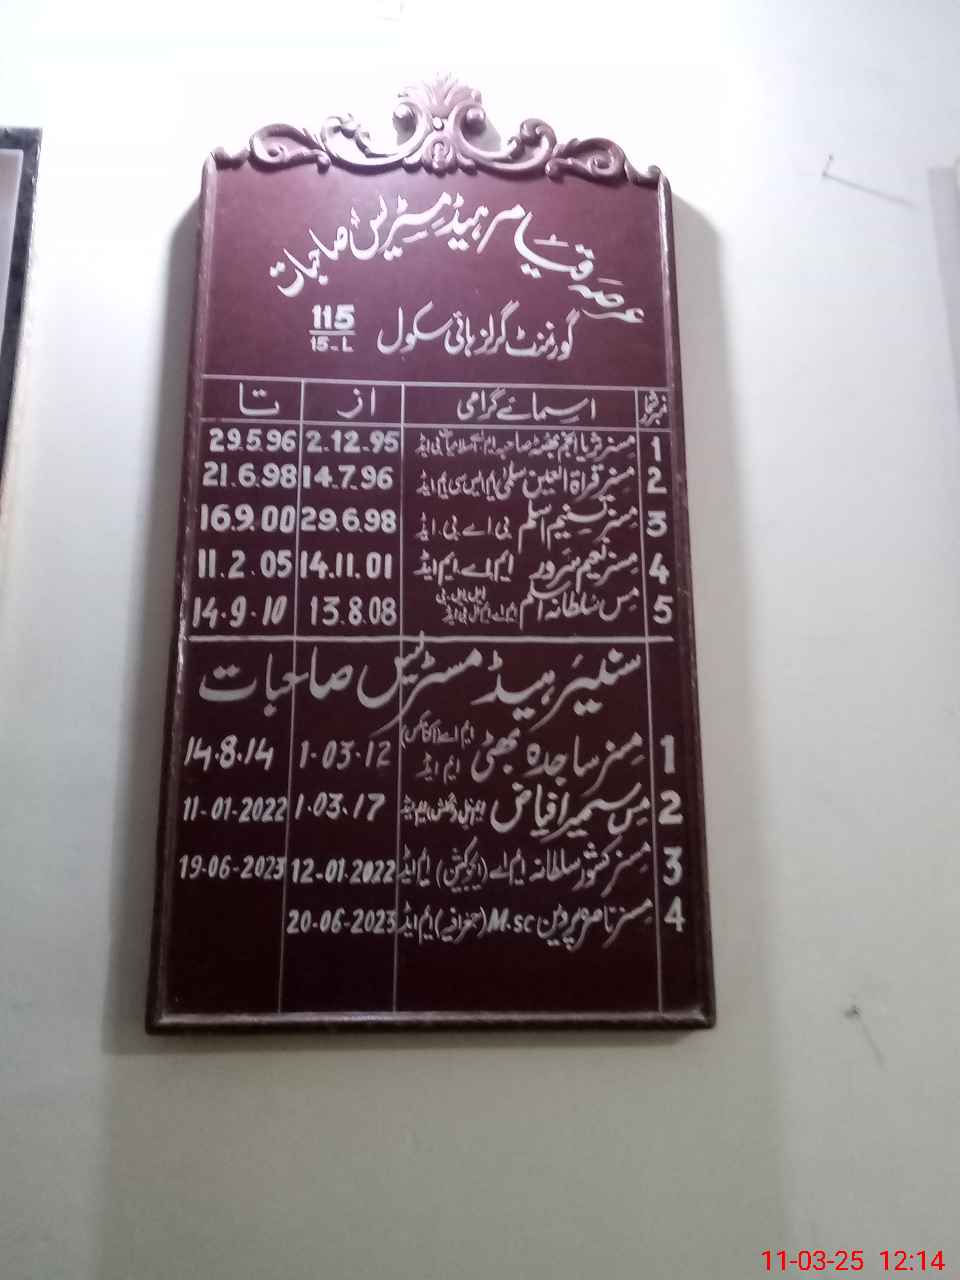 عرصہ قیام ہیڈ مسٹریس صاحبات
گورنمنٹ گرلز ہائی سکول 115/15-L
نمبر شمار اسمائے گرامی از تا
1 مسز ثریا انجم بھٹہ صاحبہ ایم اے اسلامیات بی ایڈ 2.12.95 29.5.96
2 مسز قراۃ العین سلمیٰ ایم ایس سی ایم ایڈ 14.7.96 21.6.98
3 مسز تسنیم اسلم بی اے بی ایڈ 29.6.98 16.9.00
4 مسز نعیم سرور ایم اے ایم ایڈ 14.11.01 11.2.05
5 مس سلطانہ اسلم ایم اے ایل ایل بی 13.8.08 14.9.10
سنیئر ہیڈ مسٹریس صاحبات
1 مسز ساجدہ بھٹی ایم اے (اکنامکس) ایم ایڈ 1.03.12 14.8.14
2 مس سمیرا فیاض ایم فل ایم ایڈ 1.03.17 11-01-2022
3 مسز کشور سلطانہ ایم اے (ایجوکیشن) ایم ایڈ 12-01-2022 19-06-2023
4 مسز ناصرہ پروین M.sc (جغرافیہ) ایم ایڈ 20-06-2023
11-03-25 12:14